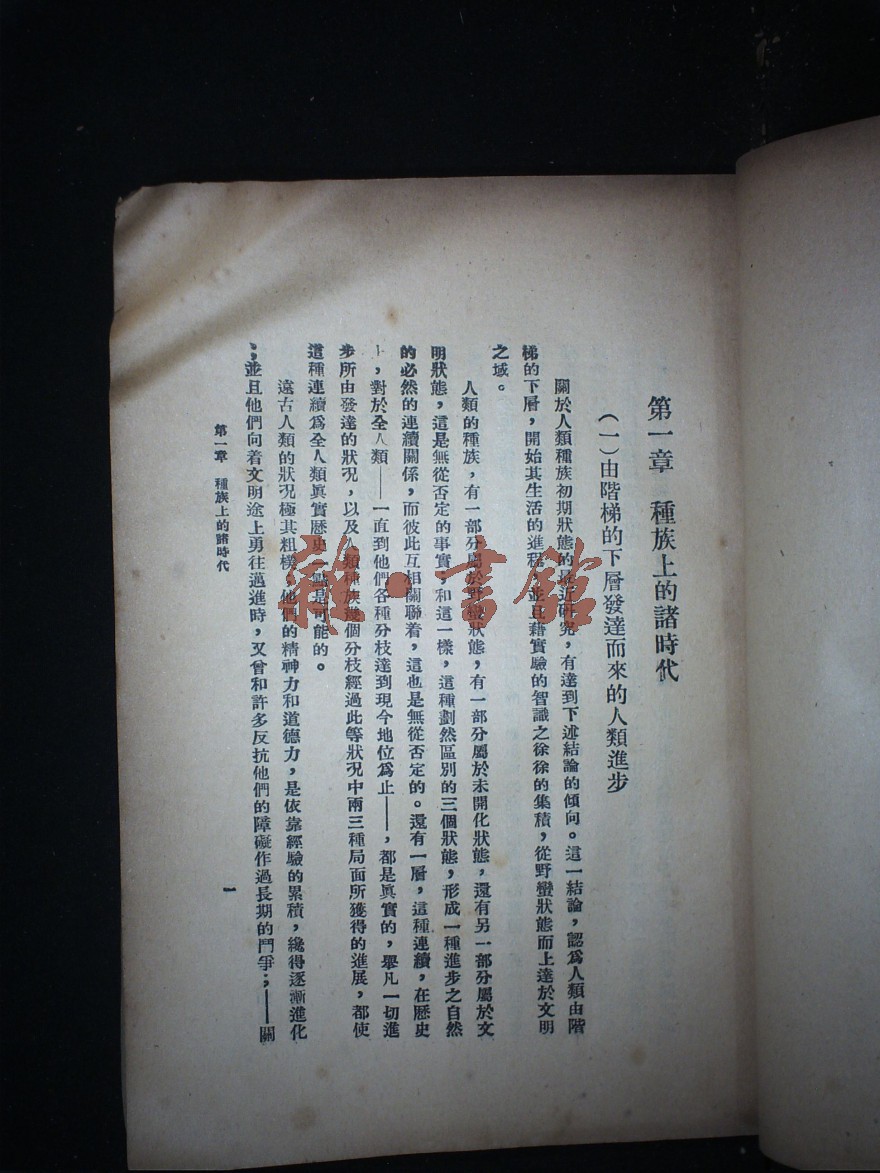 第一章　種族上的諸時代
（一）由階梯的下層發達而來的人類進步
關於人類種族初期狀態的最近研究，有達到下述結論的傾向。這一結論，認爲人類由階
梯的下層，開始其生活的進程，並且藉實驗的智識之徐徐的集積，從野蠻狀態而上達於文明
之域。
人類的種族，有一部分屬於野蠻狀態，有一部分屬於未開化狀態，還有另一部分屬於文
明狀態，這是無從否定的事實；和這一樣，這種劃然區別的三個狀態，形成一種進步之自然
的必然的連續關係，而彼此互相關聯着，這也是無從否定的。還有一層，這種連續，在歷史
上，對於全人類——一直到他們各種分枝達到現今地位爲止——，都是眞實的，舉凡一切進
步所由發達的狀況，以及人類種族幾個分枝經過此等狀況中兩三種局面所獲得的進展，都使
這種連續爲全人類眞實歷史一點是可能的。
遠古人類的狀況極其粗樸，他們的精神力和道德力，是依靠經驗的累積，纔得逐漸進化
；並且他們向着文明途上勇往邁進時，又曾和許多反抗他們的障礙作過長期的鬥爭；——關
第一章　種族上的諸時代
一
雜·書館